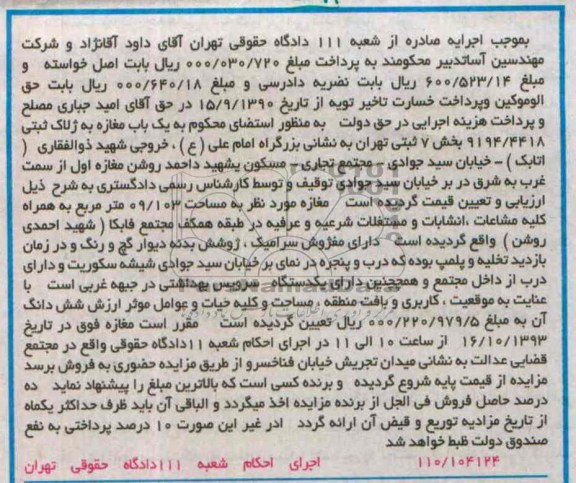 بموجب اجرائیه صادره از شعبه ۱۱۱ دادگاه حقوقی تهران آقای داود آقانژاد و شرکت
مهندسین آساتدبیر محکومند به پرداخت مبلغ ۰۰۰/۰۳۰/۷۲۰ ریال بابت اصل خواسته و
مبلغ ۶۰۰/۵۲۳/۱۴ ریال بابت نضریه دادرسی و مبلغ ۰۰۰/۶۴۰/۱۸ ریال بابت حق
الوموکین وپرداخت خسارت تاخیر تویه از تاریخ ۱۵/۹/۱۳۹۰ در حق آقای امید جباری مصلح
و پرداخت هزینه اجرایی در حق دولت به منظور استضای محکوم به یک باب مغازه به ژلاک ثبتی
۹۱۹۴/۴۴۱۸ بخش ۷ ثبتی تهران به نشانی بزرگراه امام علی ( ع ) ، خروجی شهید ذوالفقاری (
اتابک ) - خیابان سید جوادی - مجتمع تجاری - مسکون یشهید داحمد روشن مغازه اول از سمت
غرب به شرق در بر خیابان سید جوادی توقیف و توسط کارشناس رسمی دادگستری به شرح ذیل
ارزیابی و تعیین قیمت گردیده است مغازه مورد نظر به مساحت ۰۹/۱۰۳ متر مربع به همراه
کلیه مشاعات ،انشابات و مستغلات شرعیه و عرفیه در طبقه همکف مجتمع فابکا ( شهید احمدی
روشن ) واقع گردیده است دارای مفژوش سرامیک ، ژوشش بدنه دیوار گچ و رنگ و در زمان
بازدید تخلیه و پلمپ بوده که درب و پنجره در نمای بر خیابان سید جوادی شیشه سکوریت و دارای
درب از داخل مجتمع و همچجنین دارای یکدستگاه سرویس بهداشتی در جبهه غربی است با
عنایت به موقعیت ، کاربری و بافت منطقه ، مساحت و کلیه جیات و عوامل موثر ارزش شش دانگ
آن به مبلغ ۰۰۰/۲۲۰/۹۷۹/۵ ریال تعیین گردیده است مقرر است مغازه فوق در تاریخ
۱۶/۱۰/۱۳۹۳ از ساعت ۱۰ الی ۱۱ در اجرای احکام شعبه ۱۱دادگاه حقوقی واقع در مجتمع
قضایی عدالت به نشانی میدان تجریش خیابان فناخسرو از طریق مزایده حضوری به فروش برسد
مزایده از قیمت پایه شروع گردیده و برنده کسی است که بالاترین مبلغ را پیشنهاد نماید ده
درصد حاصل فروش فی الجل از برنده مزایده اخذ میگردد و الباقی آن باید ظرف حداکثر یکماه
از تاریخ مزادیه توریع و قیض آن ارائه گردد ادر غیر این صورت ۱۰ درصد پرداختی به نفع
صندوق دولت ظبط خواهد شد
۱۱۰/۱۰۴۱۲۴ اجرای احکام شعبه ۱۱۱دادگاه حقوقی تهران